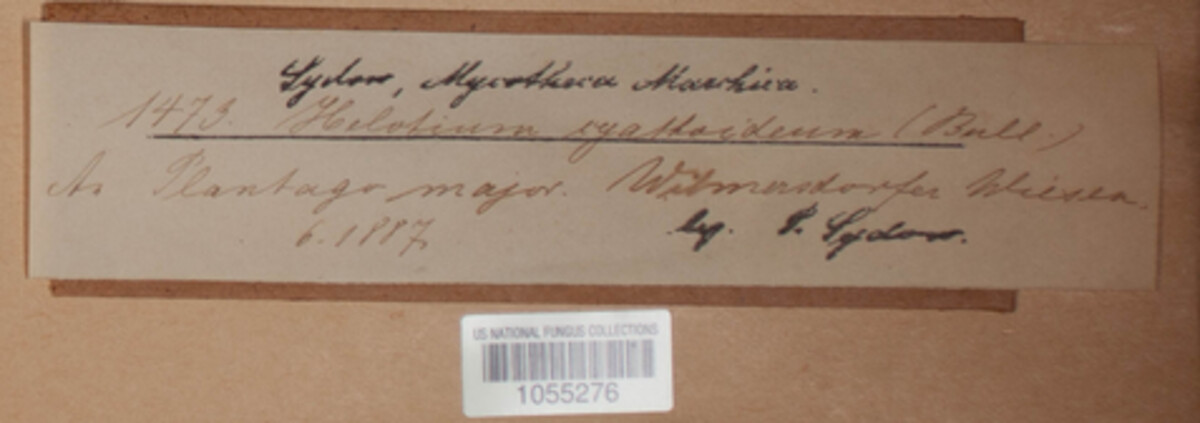 Sydow, Mycotheca Marchica.
1473. Helotium cyathoideum (Bull.)
An Plantago major. Wilmersdorfer Wiesen.
6.1887 leg. P. Sydow.
US NATIONAL FUNGUS COLLECTIONS
1055276